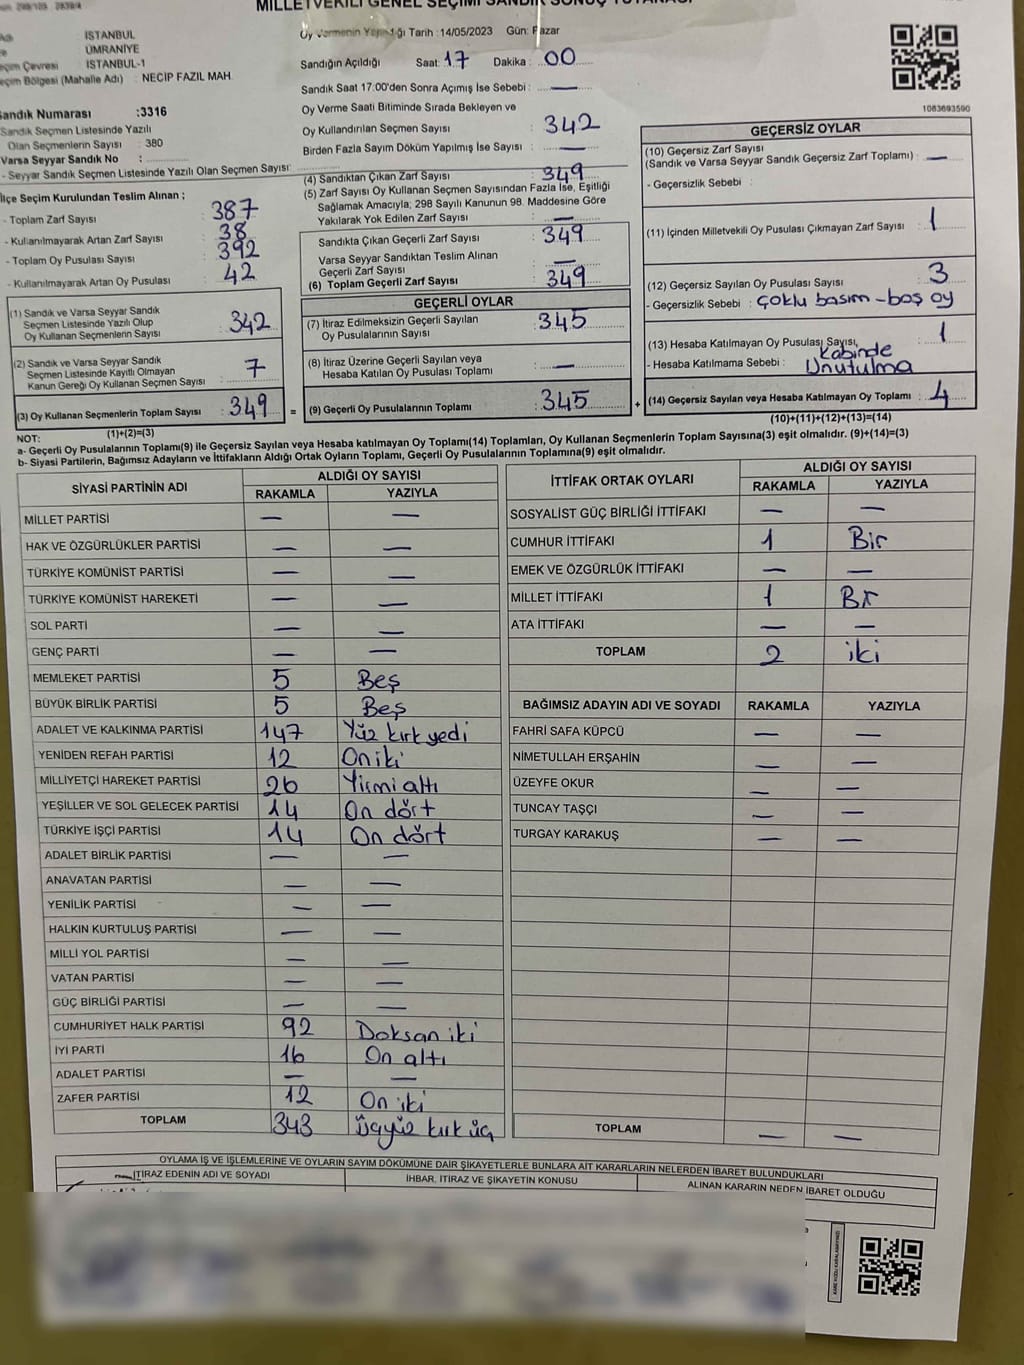 MİLLETVEKİLİ GENEL SEÇİMİ SANDIK SONUÇ TUTANAĞI
İSTANBUL
ÜMRANİYE
Seçim Çevresi İSTANBUL-1
Seçim Bölgesi (Mahalle Adı) : NECİP FAZIL MAH.
Sandık Numarası :3316
Sandık Seçmen Listesinde Yazılı
Olan Seçmenlerin Sayısı : 380
Varsa Seyyar Sandık No :
- Seyyar Sandık Seçmen Listesinde Yazılı Olan Seçmen Sayısı:
Oy Vermenin Yapıldığı Tarih :14/05/2023 Gün: Pazar
Sandığın Açıldığı Saat: 17 Dakika : 00
Sandık Saat 17:00'den Sonra Açımış İse Sebebi : —
Oy Verme Saati Bitiminde Sırada Bekleyen ve
Oy Kullandırılan Seçmen Sayısı : 342
Birden Fazla Sayım Döküm Yapılmış İse Sayısı : —
1083693590
İlçe Seçim Kurulundan Teslim Alınan ;
- Toplam Zarf Sayısı : 387
- Kullanılmayarak Artan Zarf Sayısı : 38
- Toplam Oy Pusulası Sayısı : 392
- Kullanılmayarak Artan Oy Pusulası : 42
(1) Sandık ve Varsa Seyyar Sandık
Seçmen Listesinde Yazılı Olup
Oy Kullanan Seçmenlerin Sayısı : 342
(2) Sandık ve Varsa Seyyar Sandık
Seçmen Listesinde Kayıtlı Olmayan
Kanun Gereği Oy Kullanan Seçmen Sayısı : 7
(3) Oy Kullanan Seçmenlerin Toplam Sayısı : 349 =
(1)+(2)=(3)
(4) Sandıktan Çıkan Zarf Sayısı : 349
(5) Zarf Sayısı Oy Kullanan Seçmen Sayısından Fazla İse, Eşitliği
Sağlamak Amacıyla; 298 Sayılı Kanunun 98. Maddesine Göre
Yakılarak Yok Edilen Zarf Sayısı : —
Sandıkta Çıkan Geçerli Zarf Sayısı : 349
Varsa Seyyar Sandıktan Teslim Alınan
Geçerli Zarf Sayısı : —
(6) Toplam Geçerli Zarf Sayısı : 349
GEÇERLİ OYLAR
(7) İtiraz Edilmeksizin Geçerli Sayılan
Oy Pusulalarının Sayısı : 345
(8) İtiraz Üzerine Geçerli Sayılan veya
Hesaba Katılan Oy Pusulası Toplamı : —
(9) Geçerli Oy Pusulalarının Toplamı : 345 +
GEÇERSİZ OYLAR
(10) Geçersiz Zarf Sayısı
(Sandık ve Varsa Seyyar Sandık Geçersiz Zarf Toplamı) : —
- Geçersizlik Sebebi :
(11) İçinden Milletvekili Oy Pusulası Çıkmayan Zarf Sayısı : 1
(12) Geçersiz Sayılan Oy Pusulası Sayısı : 3
- Geçersizlik Sebebi : Çoklu basım - boş oy
(13) Hesaba Katılmayan Oy Pusulası Sayısı, 1
- Hesaba Katılmama Sebebi : Kabinde
Unutulma
(14) Geçersiz Sayılan veya Hesaba Katılmayan Oy Toplamı : 4
(10)+(11)+(12)+(13)=(14)
NOT:
a- Geçerli Oy Pusulalarının Toplamı(9) ile Geçersiz Sayılan veya Hesaba katılmayan Oy Toplamı(14) Toplamları, Oy Kullanan Seçmenlerin Toplam Sayısına(3) eşit olmalıdır. (9)+(14)=(3)
b- Siyasi Partilerin, Bağımsız Adayların ve İttifakların Aldığı Ortak Oyların Toplamı, Geçerli Oy Pusulalarının Toplamına(9) eşit olmalıdır.
SİYASİ PARTİNİN ADI ALDIĞI OY SAYISI
RAKAMLA YAZIYLA
MİLLET PARTİSİ — —
HAK VE ÖZGÜRLÜKLER PARTİSİ — —
TÜRKİYE KOMÜNİST PARTİSİ — —
TÜRKİYE KOMÜNİST HAREKETİ — —
SOL PARTİ — —
GENÇ PARTİ — —
MEMLEKET PARTİSİ 5 Beş
BÜYÜK BİRLİK PARTİSİ 5 Beş
ADALET VE KALKINMA PARTİSİ 147 Yüz kırk yedi
YENİDEN REFAH PARTİSİ 12 On iki
MİLLİYETÇİ HAREKET PARTİSİ 26 Yirmi altı
YEŞİLLER VE SOL GELECEK PARTİSİ 14 On dört
TÜRKİYE İŞÇİ PARTİSİ 14 On dört
ADALET BİRLİK PARTİSİ — —
ANAVATAN PARTİSİ — —
YENİLİK PARTİSİ — —
HALKIN KURTULUŞ PARTİSİ — —
MİLLİ YOL PARTİSİ — —
VATAN PARTİSİ — —
GÜÇ BİRLİĞİ PARTİSİ — —
CUMHURİYET HALK PARTİSİ 92 Doksan iki
İYİ PARTİ 16 On altı
ADALET PARTİSİ — —
ZAFER PARTİSİ 12 On iki
TOPLAM 343 Üçyüz kırk üç
İTTİFAK ORTAK OYLARI ALDIĞI OY SAYISI
RAKAMLA YAZIYLA
SOSYALİST GÜÇ BİRLİĞİ İTTİFAKI — —
CUMHUR İTTİFAKI 1 Bir
EMEK VE ÖZGÜRLÜK İTTİFAKI — —
MİLLET İTTİFAKI 1 Bir
ATA İTTİFAKI — —
TOPLAM 2 iki
BAĞIMSIZ ADAYIN ADI VE SOYADI RAKAMLA YAZIYLA
FAHRİ SAFA KÜPCÜ — —
NİMETULLAH ERŞAHİN — —
ÜZEYFE OKUR — —
TUNCAY TAŞÇI — —
TURGAY KARAKUŞ — —
TOPLAM — —
OYLAMA İŞ VE İŞLEMLERİNE VE OYLARIN SAYIM DÖKÜMÜNE DAİR ŞİKAYETLERLE BUNLARA AİT KARARLARIN NELERDEN İBARET BULUNDUKLARI
İTİRAZ EDENİN ADI VE SOYADI İHBAR, İTİRAZ VE ŞİKAYETİN KONUSU ALINAN KARARIN NEDEN İBARET OLDUĞU